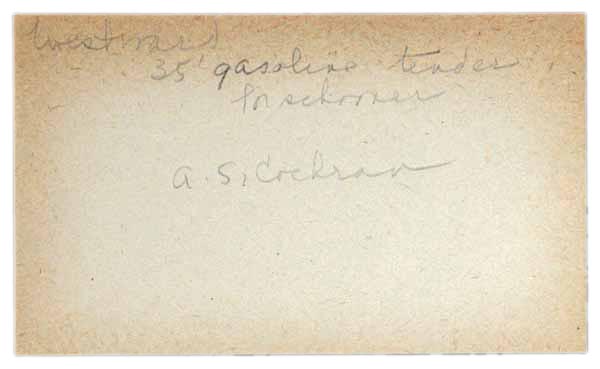 Westward
35' gasoline tender
for schooner
A. S. Cochran